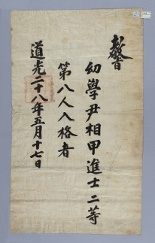 敎旨
幼學尹相甲進士二等
第八人入格者
道光二十八年五月十七日